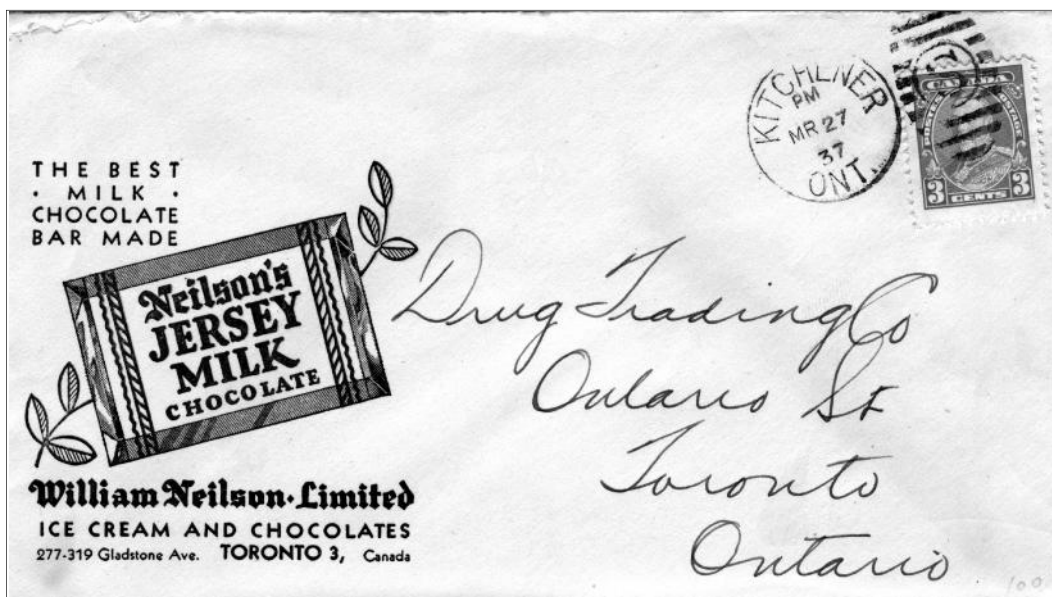 THE BEST
· MILK ·
CHOCOLATE
BAR MADE
Neilson's
JERSEY
MILK
CHOCOLATE
William Neilson·Limited
ICE CREAM AND CHOCOLATES
277-319 Gladstone Ave. TORONTO 3, Canada
KITCHENER
PM
MR 27
37
ONT.
CANADA
POSTES POSTAGE
3 CENTS 3
Drug Trading Co
Ontario St
Toronto
Ontario
100